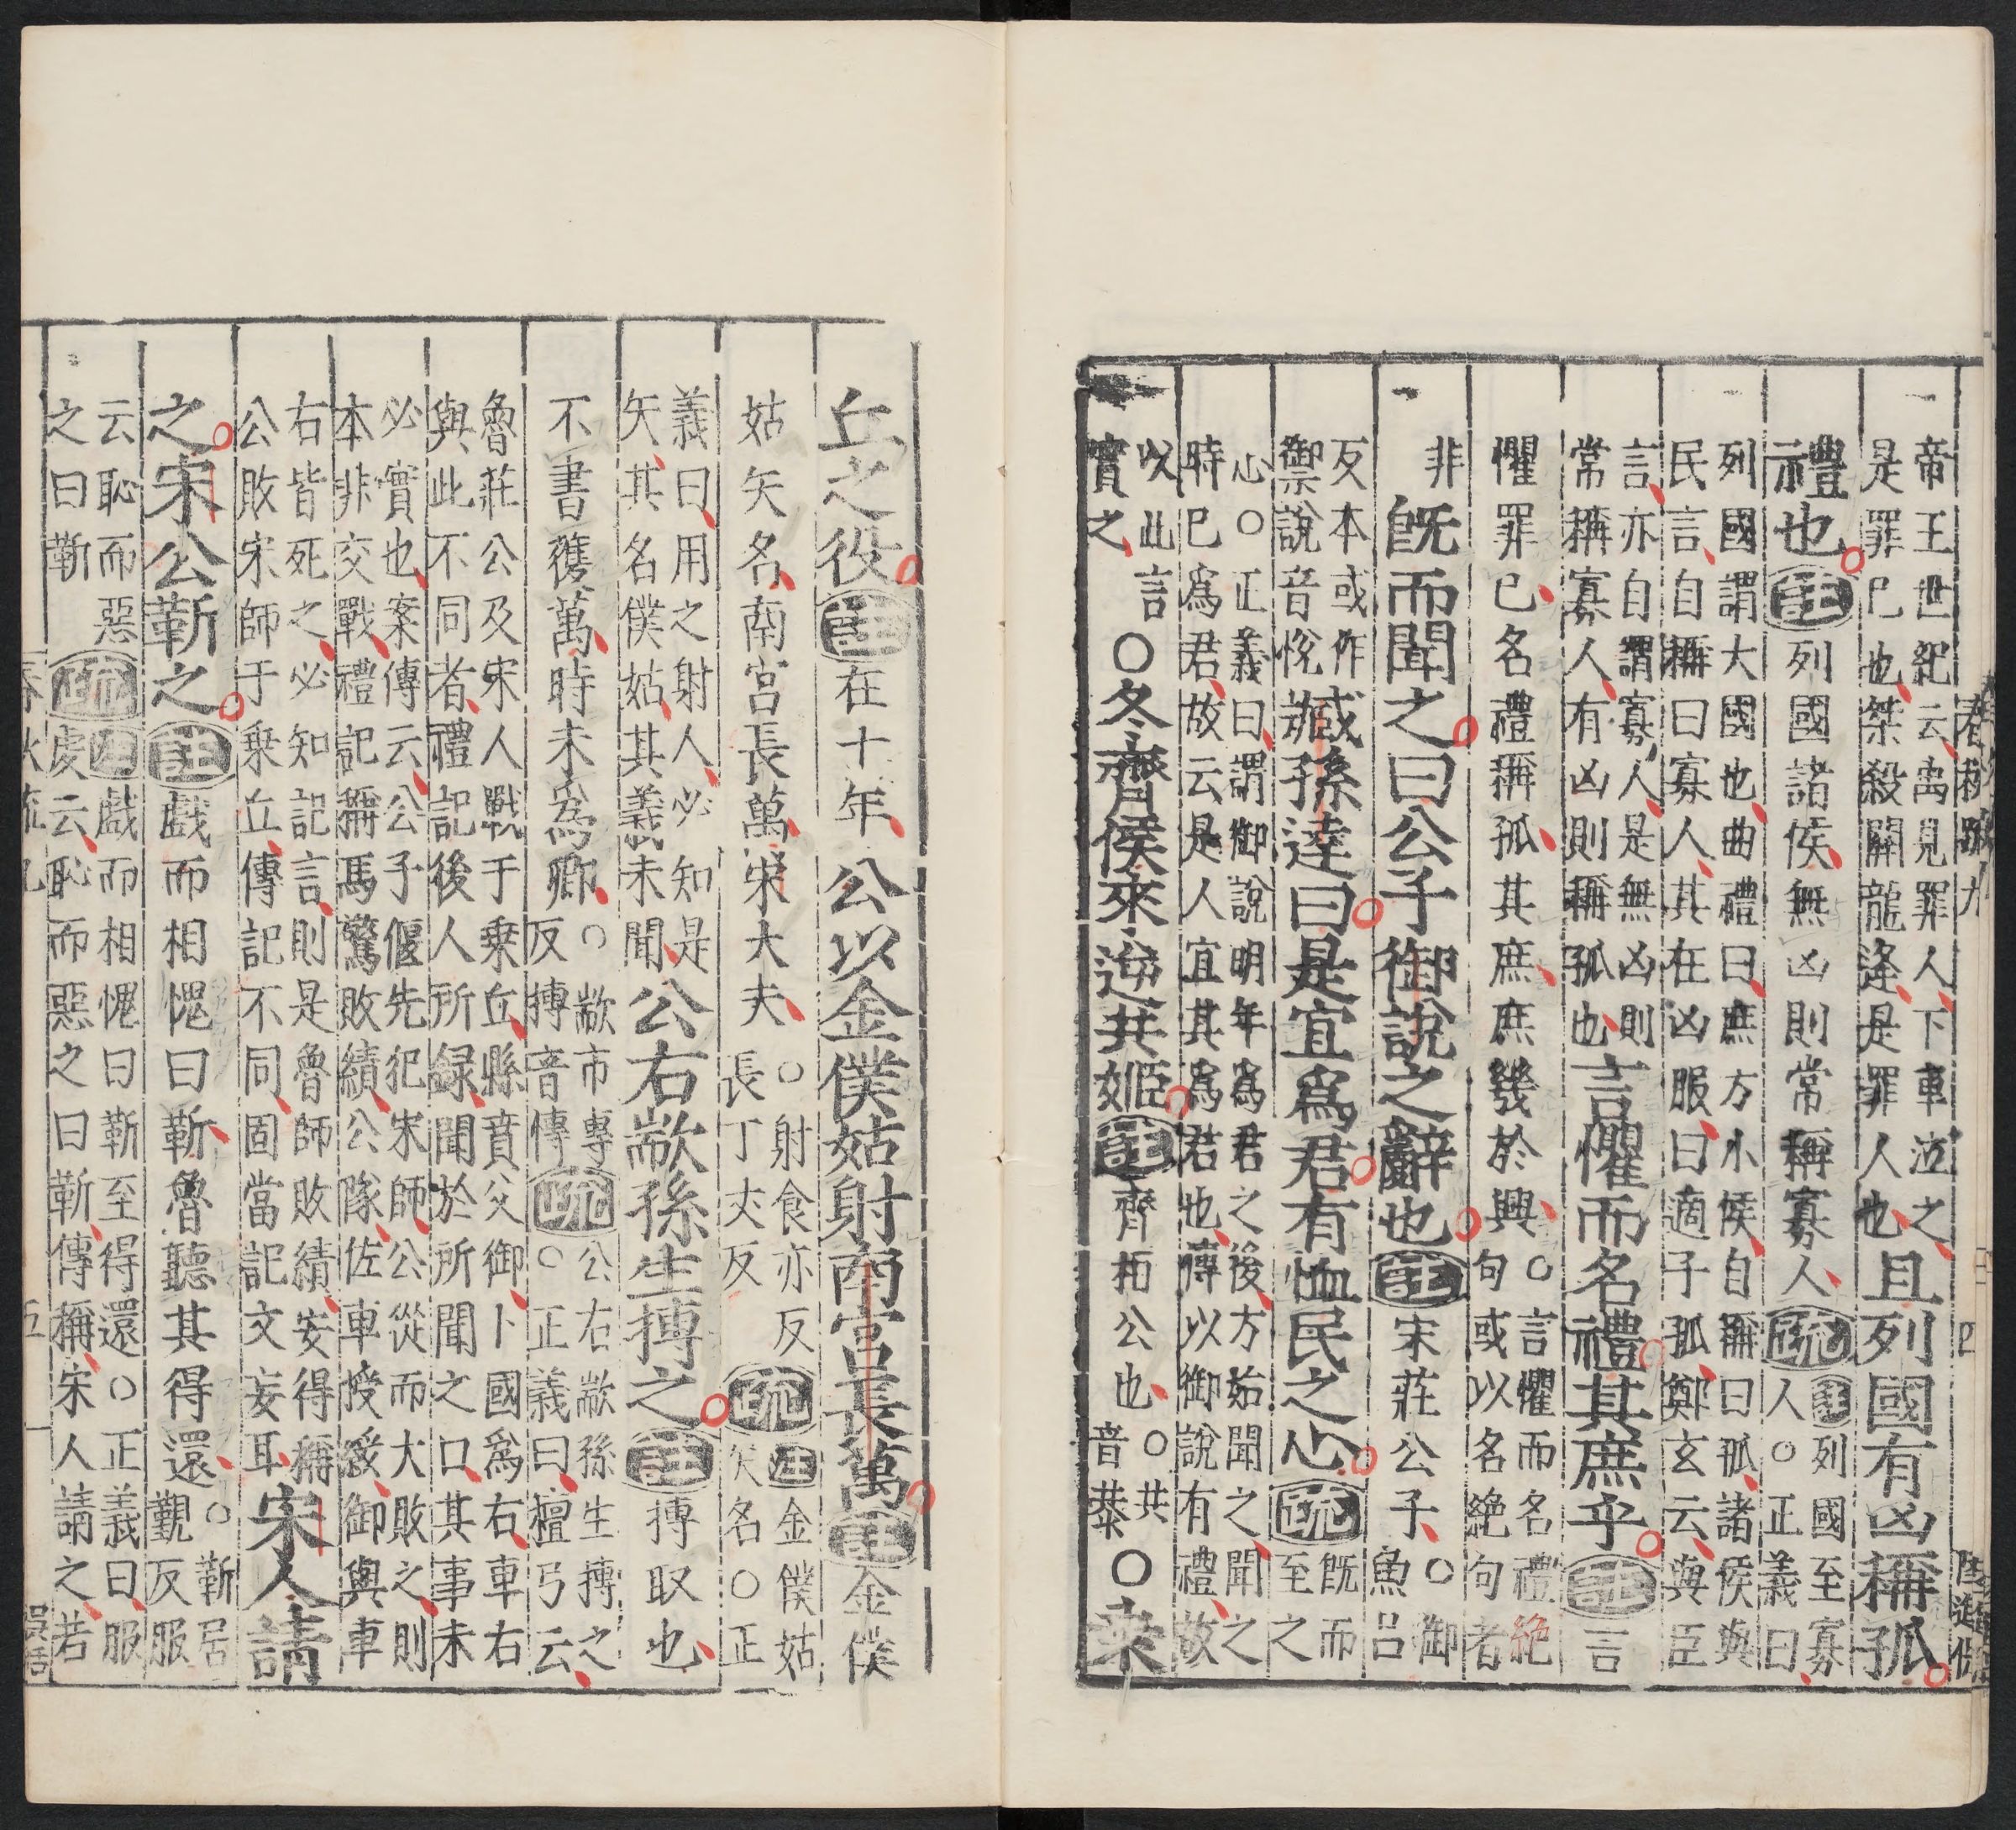 春秋疏九 四 陸進保
帝王世紀云禹見罪人下車泣之
是罪已也桀殺關龍逢是罪人也
且列國有凶稱孤
禮也註列國諸侯無凶則常稱寡人疏註列國至寡
人○正義曰
列國謂大國也曲禮曰庶方小侯自稱曰孤諸侯與
民言自稱曰寡人其在凶服曰適子孤鄭玄云與臣
言亦自謂寡人是無凶則
常稱寡人有凶則稱孤也
言懼而名禮其庶乎註言
懼罪已名禮稱孤其庶庶幾於興○言懼而名禮絶
句或以名絶句者
非
既而聞之曰公子御說之辭也註宋莊公子○御
魚呂
反本或作
御說音悅
臧孫達曰是宜爲君有恤民之心疏既而
至之
心○正義曰謂御說明年爲君之後方始聞之聞之
時已爲君故云是人宜其爲君也傳以御說有禮故
以此言
實之
○冬齊侯來逆共姬註齊桓公也○共
音恭
○乘
丘之役註在十年公以金僕姑射南宮長萬註金僕
姑矢名南宮長萬宋大夫○射食亦反
長丁丈反
疏註金僕姑
矢名○正
義曰用之射人必知是
矢其名僕姑其義未聞
公右歂孫生搏之註搏取也
不書獲萬時未爲卿○歂市專
反搏音傳
疏公右歂孫生搏之
○正義曰檀弓云
魯莊公及宋人戰于乗丘縣賁父御卜國爲右車右
與此不同者禮記後人所録聞於所聞之口其事未
必實也案傳云公子偃先犯宋師公從而大敗之則
本非交戰禮記稱馬驚敗績公隊佐車授綏御與車
右皆死之必知記言則是魯師敗績安得稱
公敗宋師于乗丘傳記不同固當記文妄耳
宋人請
之宋公靳之註戲而相愧曰靳魯聽其得還○靳居
覲反服
云恥而惡
之曰靳
疏註戲而相愧曰靳至得還○正義曰服
虔云恥而惡之曰靳傳稱宋人請之若
春秋疏九 五